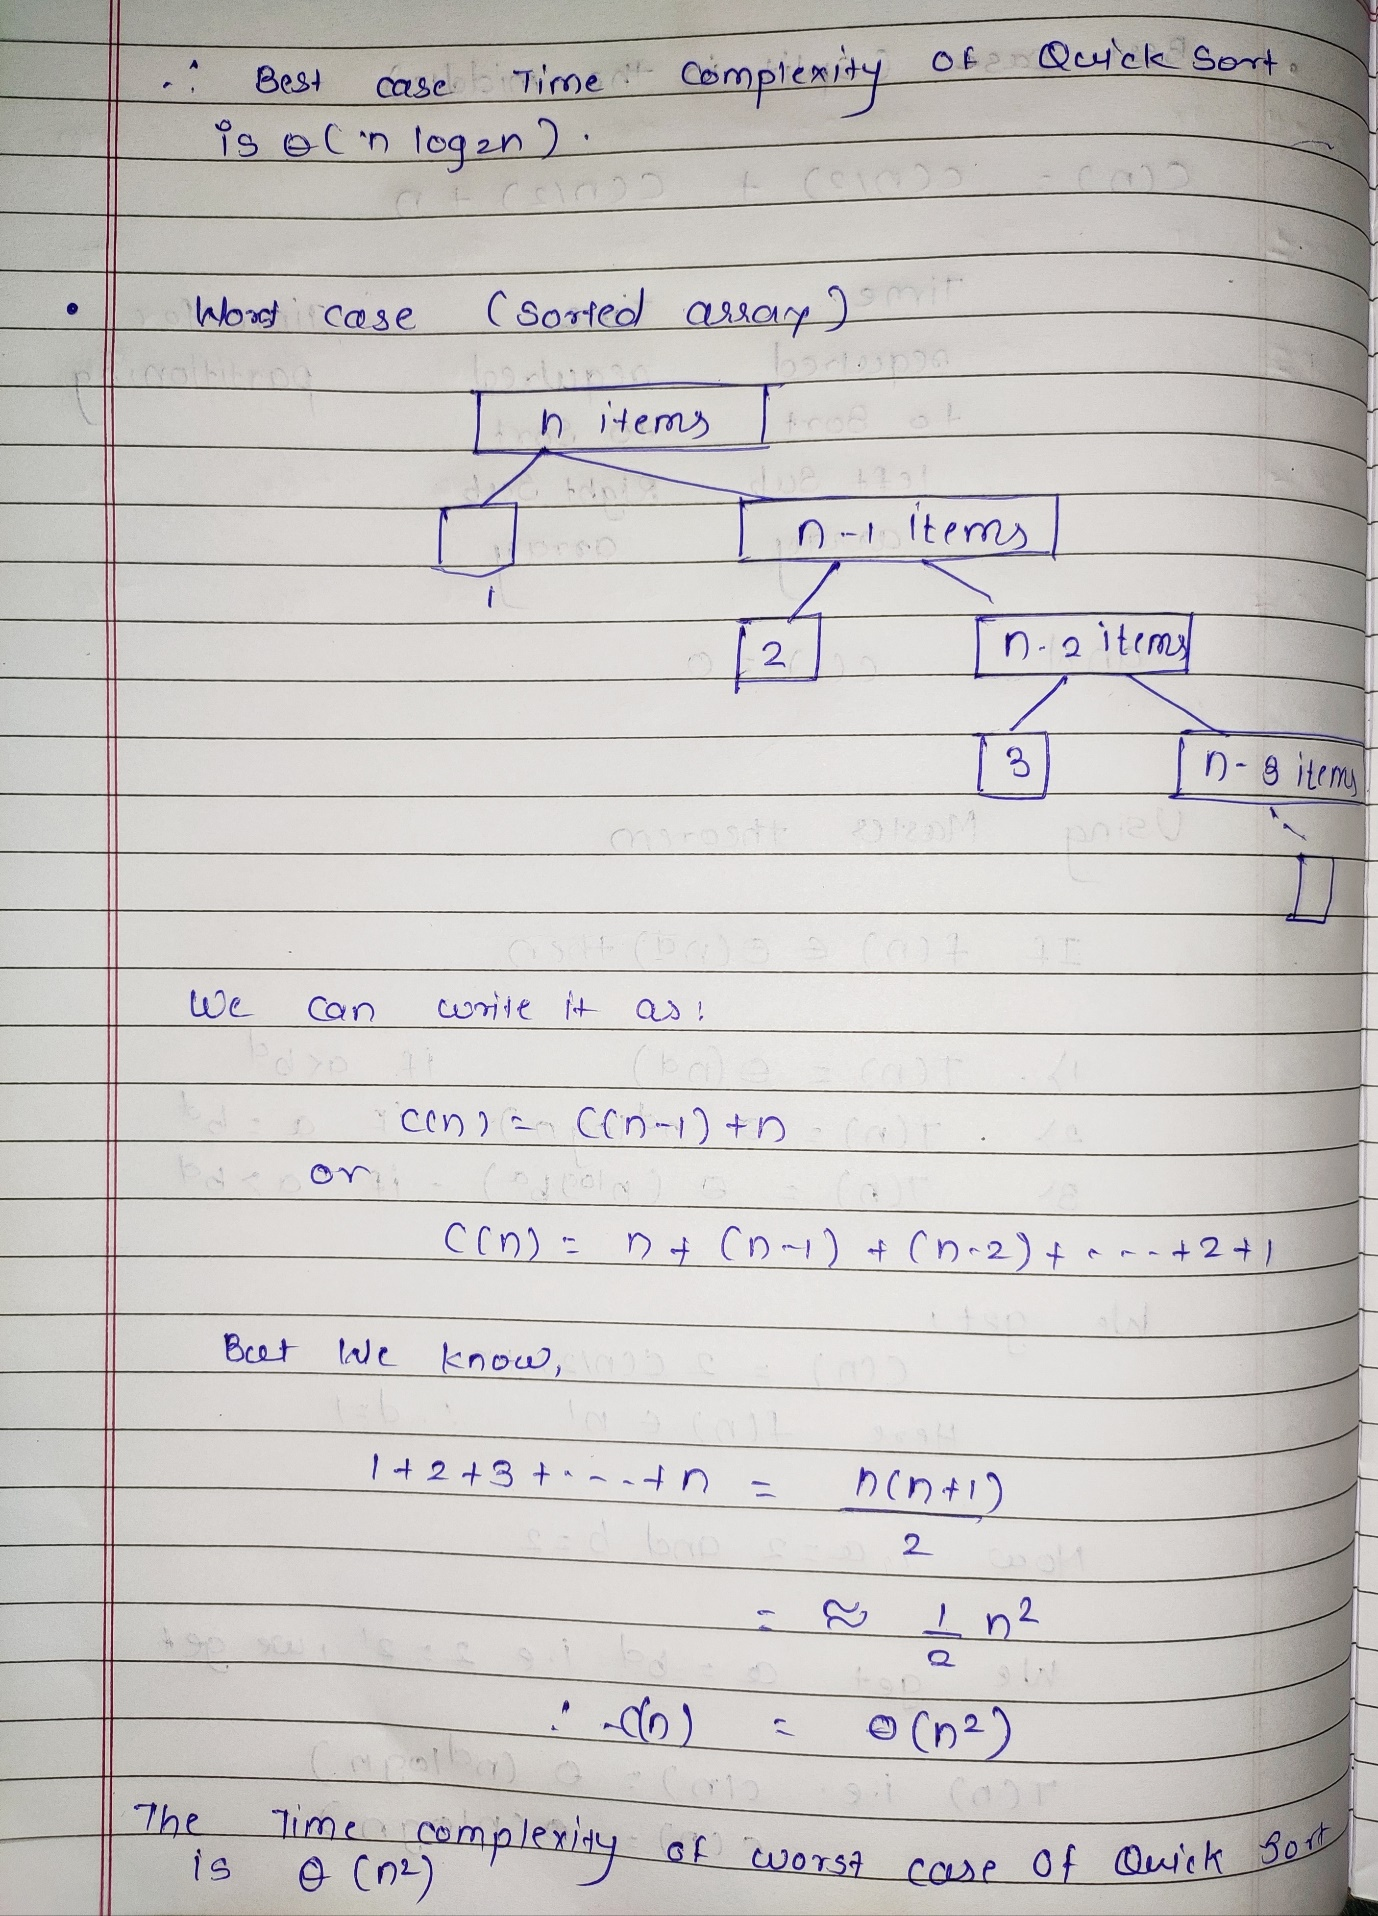 ∴ Best case Time complexity of Quick Sort
is θ(n log2n).
• Worst case (Sorted array)
n items
n-1 items
1
2
n-2 items
3
n-3 items
We can write it as:
C(n) = C(n-1) + n
or
C(n) = n + (n-1) + (n-2) + .... + 2 + 1
But We know,
1 + 2 + 3 + .... + n = n(n+1)
2
= ≈ 1/2 n²
∴ C(n) = θ(n²)
The Time complexity of worst case of Quick Sort
is θ(n²)